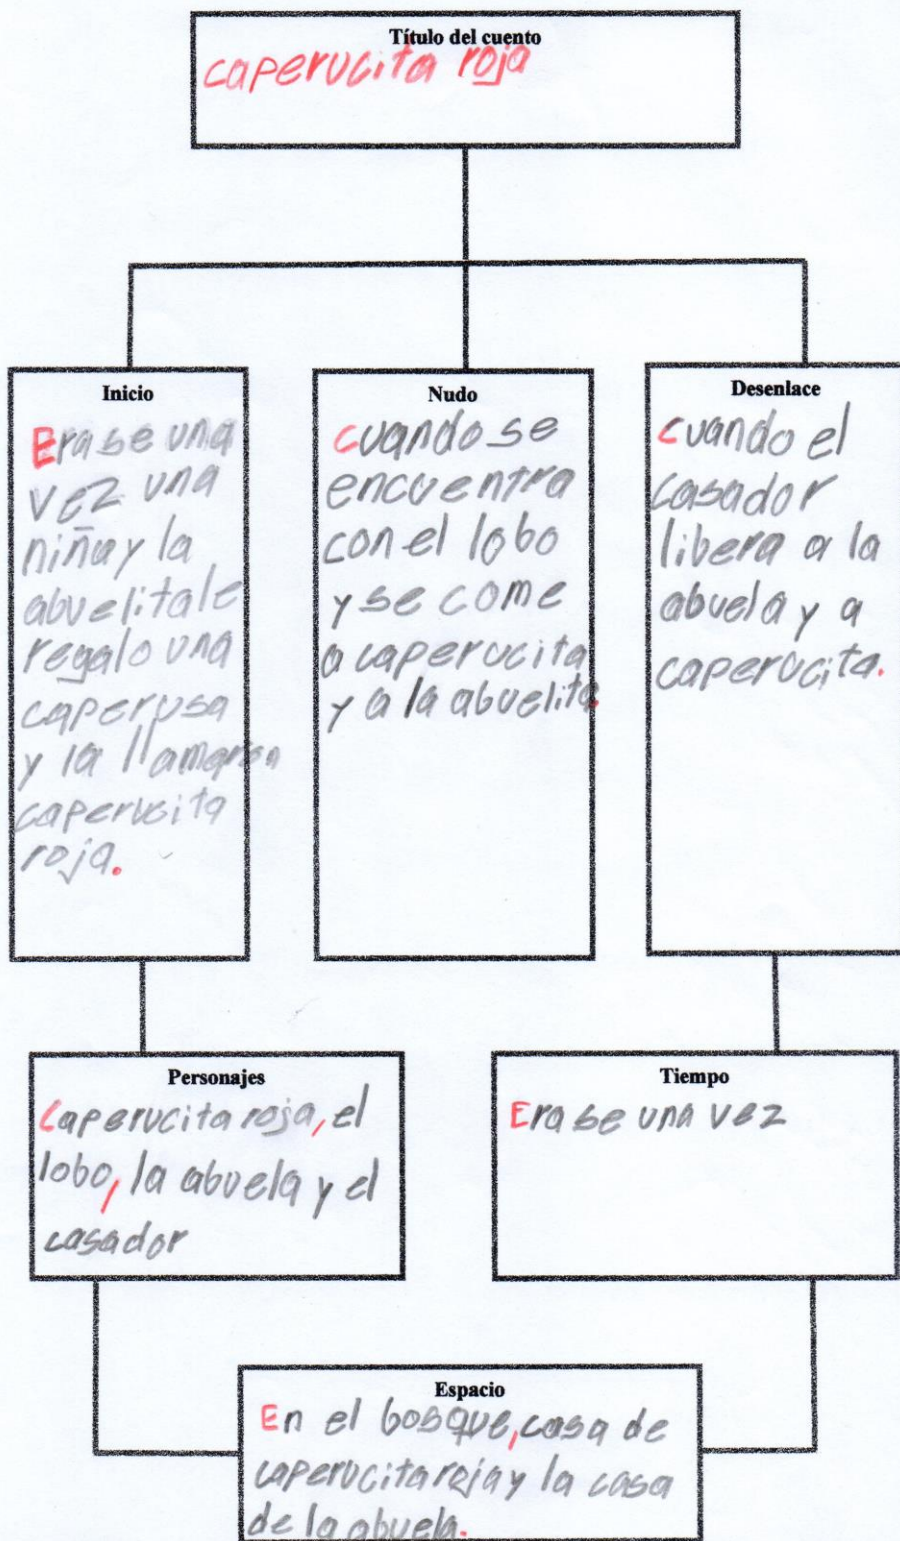 Título del cuento
caperucita roja
Inicio
Erase una
vez una
niña y la
abuelita le
regalo una
caperusa
y la llamaron
caperucita
roja.
Nudo
cuando se
encuentra
con el lobo
y se come
a caperucita
y a la abuelita.
Desenlace
cuando el
casador
libera a la
abuela y a
caperucita.
Personajes
Caperucita roja, el
lobo, la abuela y el
casador
Tiempo
Erase una vez
Espacio
En el bosque, casa de
caperucita roja y la casa
de la abuela.